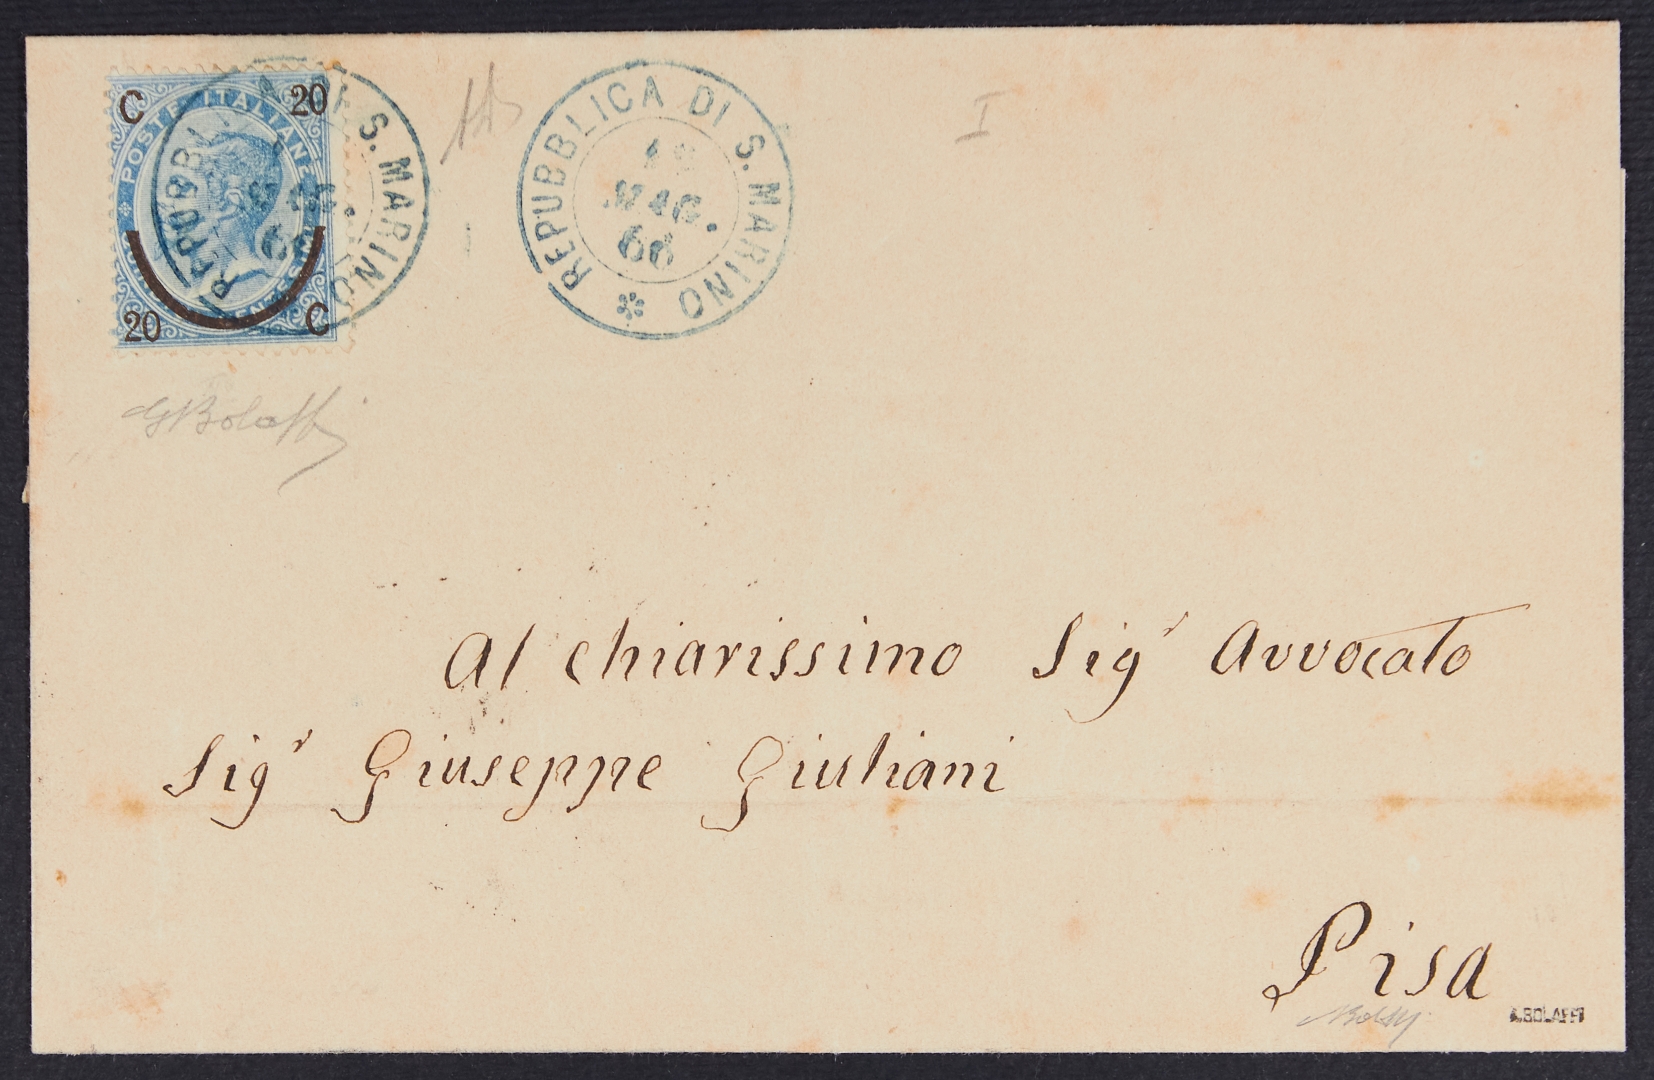 C 20
POSTE ITALIANE
20 C
REPUBBLICA DI S. MARINO
MAG.
66
REPUBBLICA DI S. MARINO
MAG.
66
I
G Bolaffi
Al chiarissimo Sigr Avvocato
Sigr Giuseppe Giuliani
Pisa
A. BOLAFFI